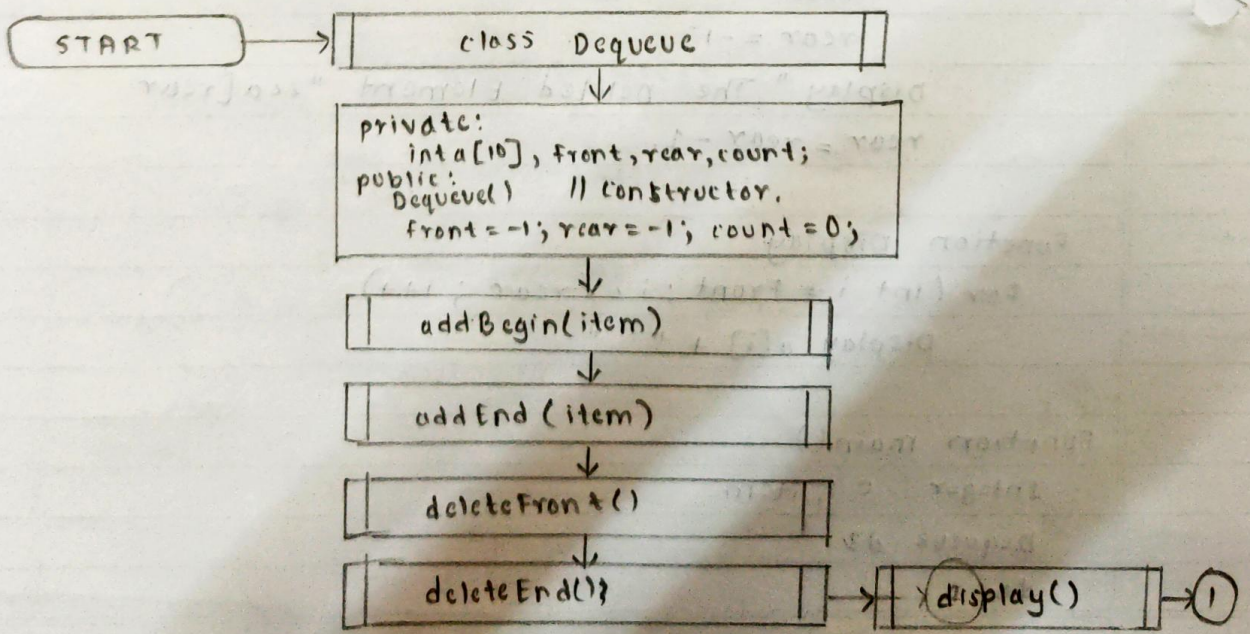 START
class Dequeue
private:
int a[10], front, rear, count;
public:
Dequeue() // constructor.
front = -1; rear = -1; count = 0;
addBegin(item)
addEnd (item)
deleteFront()
deleteEnd()}
display()
1